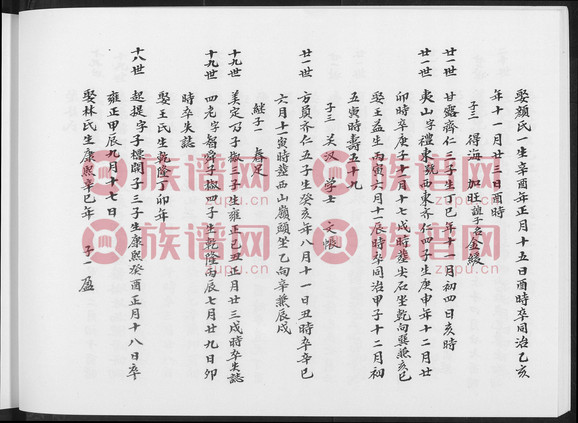 娶顏氏一生辛酉年正月十五日酉時卒同治乙亥
年十一月廿三日酉時
子三 得海 加旺 誼子名金緞
廿一世 甘露齊仁三子生丁巳年十一月初四日亥時
廿一世 夷山字禮東號西東齊仁四子生庚申年十二月廿
卯時卒庚子十月十七戌時葬尖石坐乾向巽兼亥巳
娶王益生丙寅六月十二辰時卒同治甲子十二月初
五寅時壽五十九
子三 关汉 學士 文帳
廿一世 方員齊仁五子生癸亥年八月十一日丑時卒辛巳
六月十二寅時葬西山嶺頭坐乙向辛兼辰戌
継子一 春足
十九世 美定 子椒三子生雍正己丑正月廿三戌時卒失誌
十九世 四老字智舜子椒四子生乾隆丙辰七月廿九日卯
時卒失誌
娶王氏生乾隆丁卯年
十八世 起提字子標開子三子生康熙癸酉正月十八日卒
雍正甲辰九月十七日
娶林氏生康熙辛巳年 子一 盈
族谱网
zupu.cn
族谱网
zupu.cn
族谱网
zupu.cn
族谱网
zupu.cn